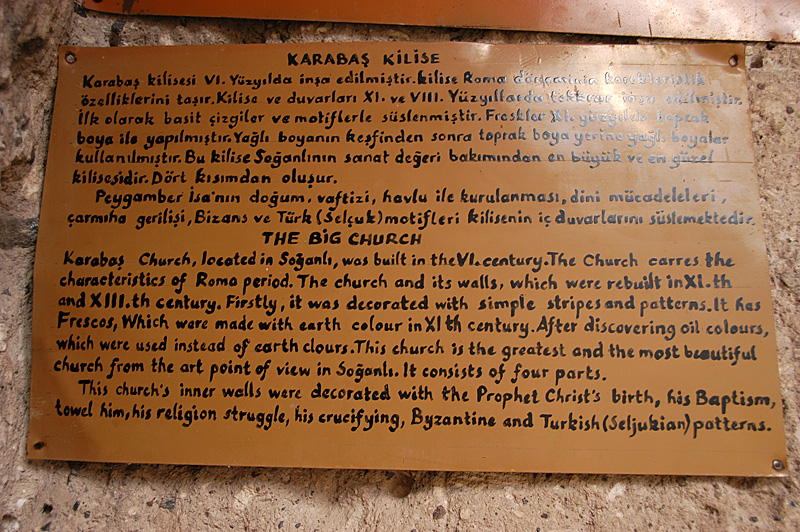 KARABAŞ KİLİSE
Karabaş kilisesi VI. Yüzyılda inşa edilmiştir. kilise Roma dönemine karekteristik
özelliklerini taşır. Kilise ve duvarları XI. ve VIII. Yüzyıllarda tekrar inşa edilmiştir.
İlk olarak basit çizgiler ve motiflerle süslenmiştir. Freskler XI. yüzyılda toprak
boya ile yapılmıştır. Yağlı boyanın keşfinden sonra toprak boya yerine yağlı boyalar
kullanılmıştır. Bu kilise Soğanlının sanat değeri bakımından en büyük ve en güzel
kilisesidir. Dört kısımdan oluşur.
Peygamber İsa'nın doğum, vaftizi, havlu ile kurulanması, dini mücadeleleri,
çarmıha gerilişi, Bizans ve Türk (Selçuk) motifleri kilisenin iç duvarlarını süslemektedir.
THE BIG CHURCH
Karabaş Church, located in Soğanlı, was built in the VI. century. The Church carres the
characteristics of Roma period. The church and its walls, which were rebuilt in XI.th
and XIII.th century. Firstly, it was decorated with simple stripes and patterns. It has
Frescos, Which were made with earth colour in XI th century. After discovering oil colours,
which were used instead of earth clours. This church is the greatest and the most beautiful
church from the art point of view in Soğanlı. It consists of four parts.
This church's inner walls were decorated with the Prophet Christ's birth, his Baptism,
towel him, his religion struggle, his crucifying, Byzantine and Turkish (Seljukian) patterns.